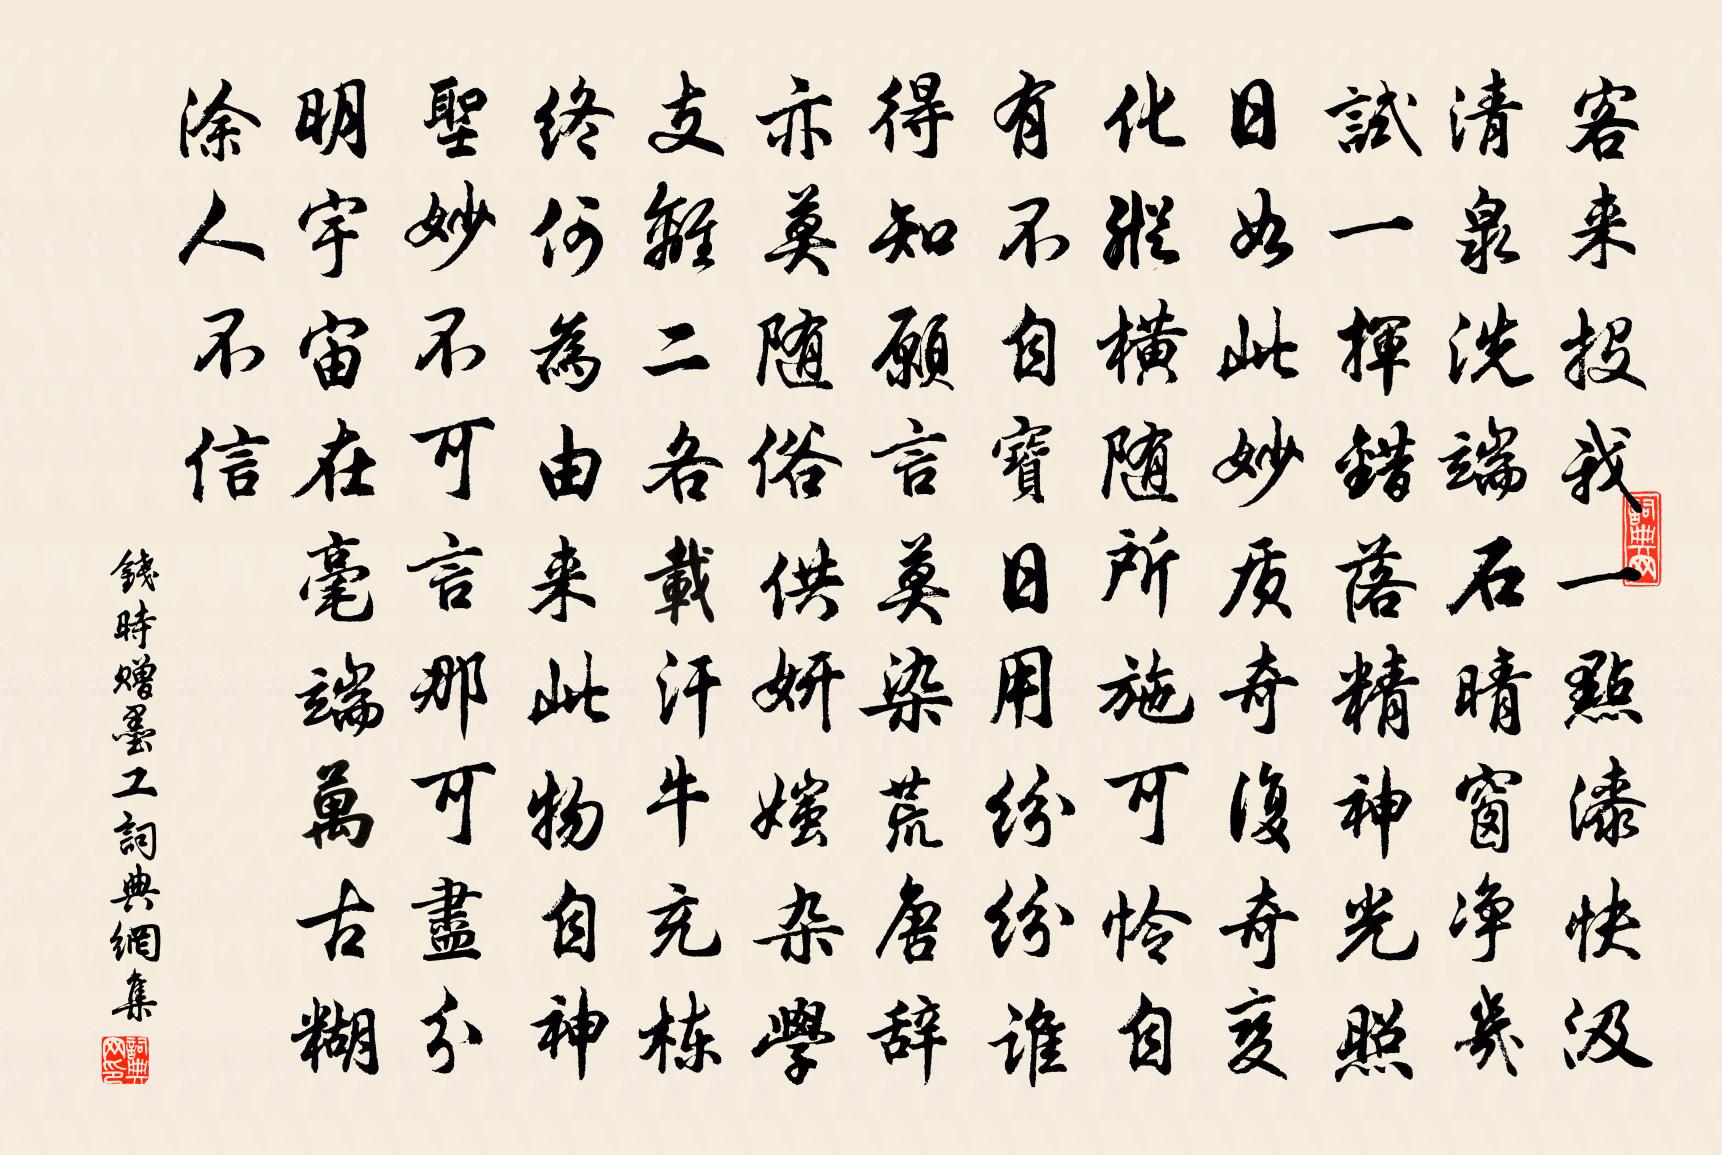 客来投我一點漆快汲
清泉洗端石晴窗净幾
試一揮錯落精神光照
日如此妙质奇復奇变
化縱横随所施可怜自
有不自寶日用紛紛谁
得知願言莫染荒唐辞
亦莫随俗供妍媸杂學
支離二各載汗牛充栋
终何為由来此物自神
聖妙不可言那可盡分
明宇宙在毫端萬古糊
涂人不信
錢時赠墨工詞典網集
詞典网
詞典网印